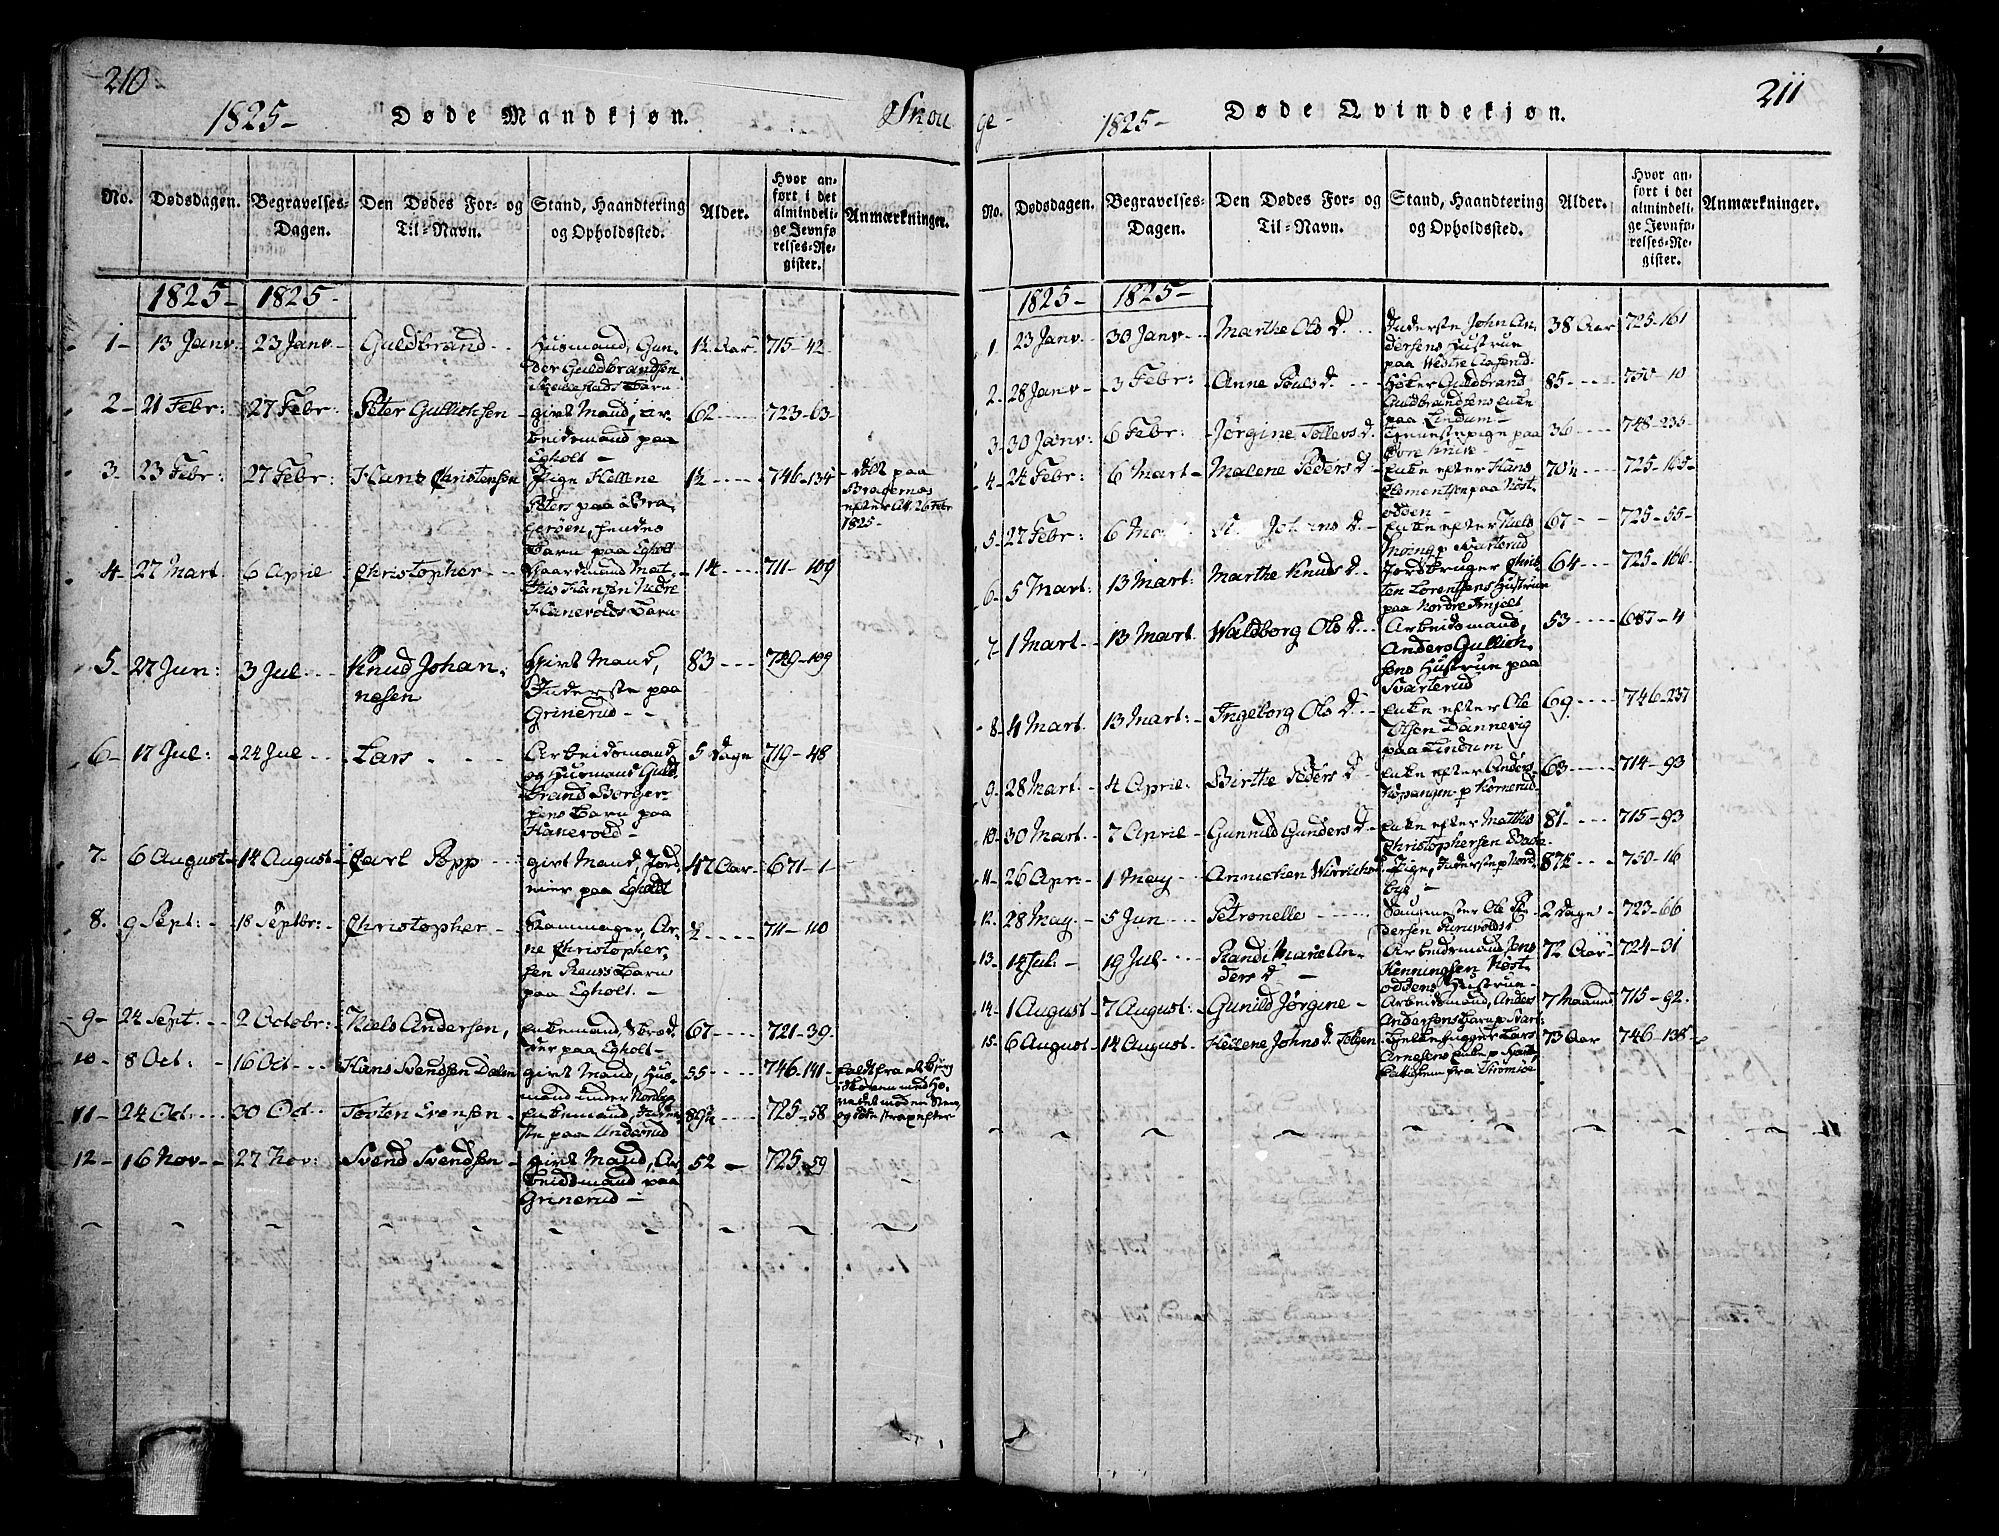 210
1825- Døde Mandkjøn. Skou
No.
Dødsdagen.
Begravelses-
Dagen.
Den Dødes For- og
Til-Navn.
Stand, Haandtering
og Opholdssted.
Alder.
Hvor an-
ført i det
almindeli-
ge Jevnfø-
relses-Re-
gister.
Anmærkninger.
1825- 1825-
1- 13 Janv: 23 Janv- Guldbrand - Husmand, Gun-
der Guldbrandsen
Barn 1½ Aar 715-42
2- 21 Febr: 27 Febr: Peter Gullichsen - givt Mand, ar-
beidsmand paa
Egholt - 62 - 723-63
3- 23 Febr: 27 Febr: Hans Christensen Pige Hellene
Peters paa Bra-
gerøen, hendes
Barn paa Egholt 1½ - 746-134 Døbt paa
Bragernæs
efter Att. 26 Febr
1825-
4- 27 Mart 6 April Christopher - Gaardmand Mat-
this Hansen Nedre
Hanevolds Barn - 14 - 711-109
5- 27 Jun: 3 Jul - Knud Johan-
nesen Givt Mand,
Inderste paa
Grinerud - 83 - 749-109
6- 17 Jul: 24 Jul - Lars - Arbeidsmand
og Husmand Guld-
brand Borger-
sens Barn paa
Hanevold - 5 Dage 719-48
7- 6 August- 14 August- Carl Popp - givt Mand, Jord-
 paa Egholt 47 Aar- 671-1
8. 9 Sept: - 18 Septbr: - Christopher - Skommager, Ar-
ne Christopher-
sen Barn
paa Egholt. - ½ - 711-110
9- 24 Sept. - 2 Octobr: Niels Andersen, Enkemand Skræd-
der paa Egholt - 67 - 721-39
10- 8 Oct: - 16 Oct - Hans Svendsen Dalen givt Mand, Hus-
mand under Nordby 55 - 746-141-
11- 24 Oct: - 30 Oct: Torsten Evensen - Enkemand, Inder-
ste paa 89½ - 725-58
12- 16 Nov - 27 Nov: Svend Svendsen - givt Mand, Ar-
beidsmand paa
Grinerud - 52 - 725-59
211
ge - 1825- Døde Qvindekjøn.
No.
Dødsdagen.
Begravelses-
Dagen.
Den Dødes For- og
Til-Navn.
Stand, Haandtering
og Opholdssted.
Alder.
Hvor an-
ført i det
almindeli-
ge Jevnfø-
relses-Re-
gister.
Anmærkninger.
1825- 1825-
1- 23 Janv. 30 Janv- Marthe Ols D. - Inderste John An-
dersens Hustrue
paa Vestre 38 Aar 725-161
2- 28 Janv- 3 Febr: Anne Pouls D. - Høker Guldbrand
Guldbrandsens Enke
paa Lindum - 85 - 750-10
3- 30 Janv: 6 Febr: Jørgine Tollevs D. Tjenestepige paa
Øvre 36 - 748-235
4- 24 Febr: 6 Mart- Malene Peders D - Enke efter Hans
Clementsen paa Nøst-
odden - 70¼ - 725-165
5- 27 Febr: 6 Johans D - Enke efter Niels
 p Svarterud 67 - 725-55-
6- 5 Mart: 13 Mart: Marthe Knuds D - Jordbruger Chris-
ten Lorentsens Hustrue
paa Nordre 64 - 725-166
7- 1 Mart - 13 Mart. Waldborg Ols D. - Arbeidsmand,
Anders Gullich-
sens Hustrue paa
Svarterud 53 - 687-4
8- 4 Mart 13 Mart: - Ingeborg Ols D - Enke efter Ole
Olsen Dannevig
paa Lindum 69 - 746-237
9- 28 Mart. - 4 April: Birthe Peders D - Enke efter Anders
 p Kornerud 63 - 714-93
10- 30 Mart - 7 April - Gunnild Gunders D - Enke efter Matthis
Christophersen 81 - 715-93
11- 26 Apr: 1 May - Annichen Pige, Inderste p Nord-
bye - 87½ - 750-16
12. 28 May. - 5 Jun - Petronelle - Ole Pe-
dersen 2 Dage 723-66
13- 14 Jul: - 19 Jul - Randi Marie An-
ders d - Arbeidsmand Jens
Henningsen Nøst-
oddens Hustrue - 72 Aar 724-31
14- 1 August - 7 August: Gunild Jørgine - Arbeidsmand, Anders
Andersens Barn p Svart: 7 Maaned 715-92.
15- 6 August- 14 August. Hellene Johns D. Lars
Arnesens Enke p 
 fra Strømsøe 73 Aar 746-138-